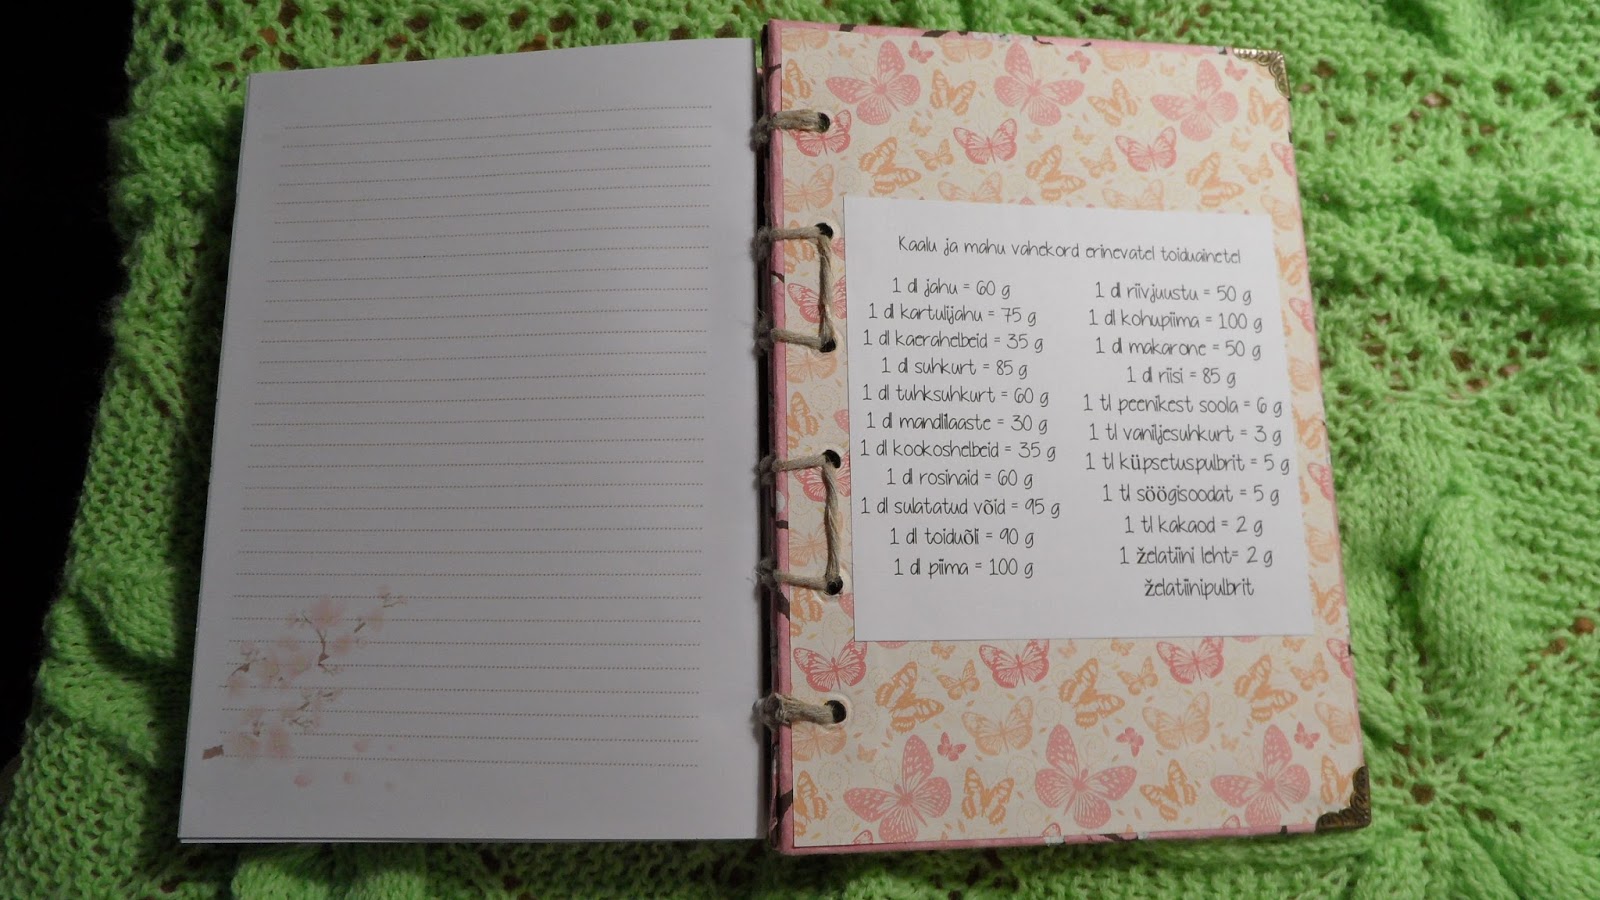 Kaalu ja mahu vahekord erinevatel toiduainetel
1 dl jahu = 60 g
1 dl kartulijahu = 75 g
1 dl kaerahelbeid = 35 g
1 dl suhkurt = 85 g
1 dl tuhksuhkurt = 60 g
1 dl mandlilaaste = 30 g
1 dl kookoshelbeid = 35 g
1 dl rosinaid = 60 g
1 dl sulatatud võid = 95 g
1 dl toiduõli = 90 g
1 dl piima = 100 g
1 dl riivjuustu = 50 g
1 dl kohupiima = 100 g
1 dl makarone = 50 g
1 dl riisi = 85 g
1 tl peenikest soola = 6 g
1 tl vaniljesuhkurt = 3 g
1 tl küpsetuspulbrit = 5 g
1 tl söögisoodat = 5 g
1 tl kakaod = 2 g
1 želatiini leht= 2 g
želatiinipulbrit